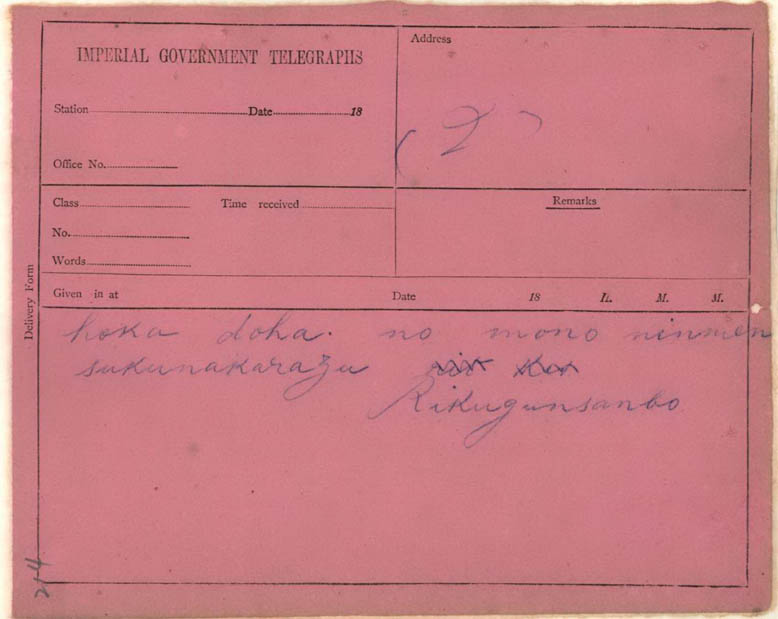 IMPERIAL GOVERNMENT TELEGRAPHS
Station Date 18
Office No.
Address
(2)
Class Time received
No.
Words
Remarks
Given in at Date 18 H. M. M.
Delivery Form
hoka doha. no mono ninmen
sukunakarazu
Rikugunsanbo